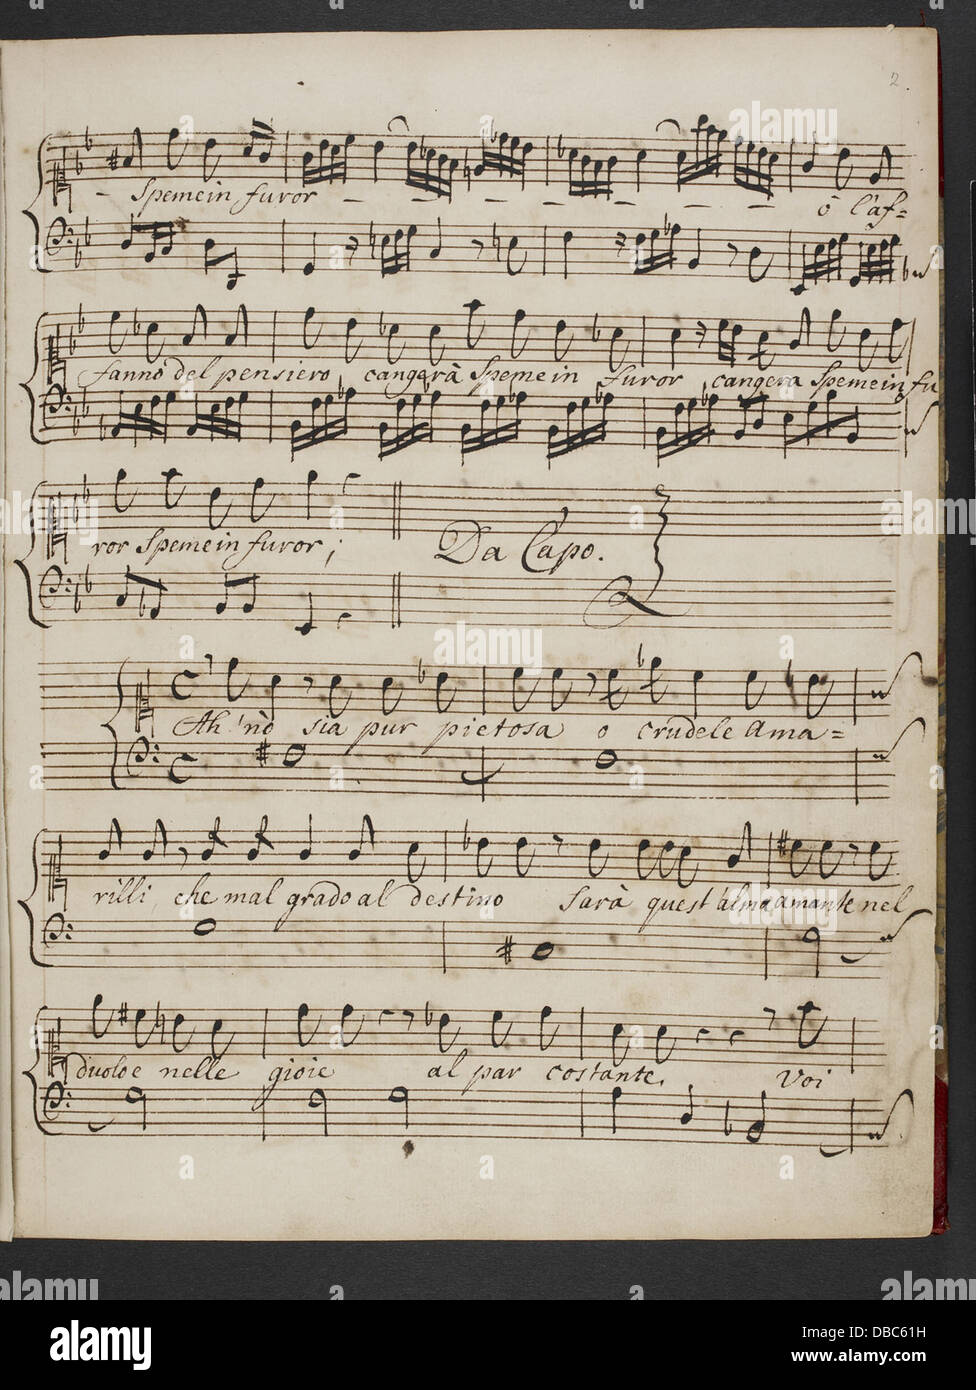 2
- Speme in furor - - - - - - - - ò l'af=
fanno del pensiero cangerà Speme in furor cangera Speme in fu
ror Speme in furor; Da Capo.
Ah nò sia pur pietosa o crudele Ama=
rilli, che mal grado al destino Sarà quest'alma amante nel
duolo e nelle gioie al par costante. Voi
alamy
Image ID: DBC61H
www.alamy.com